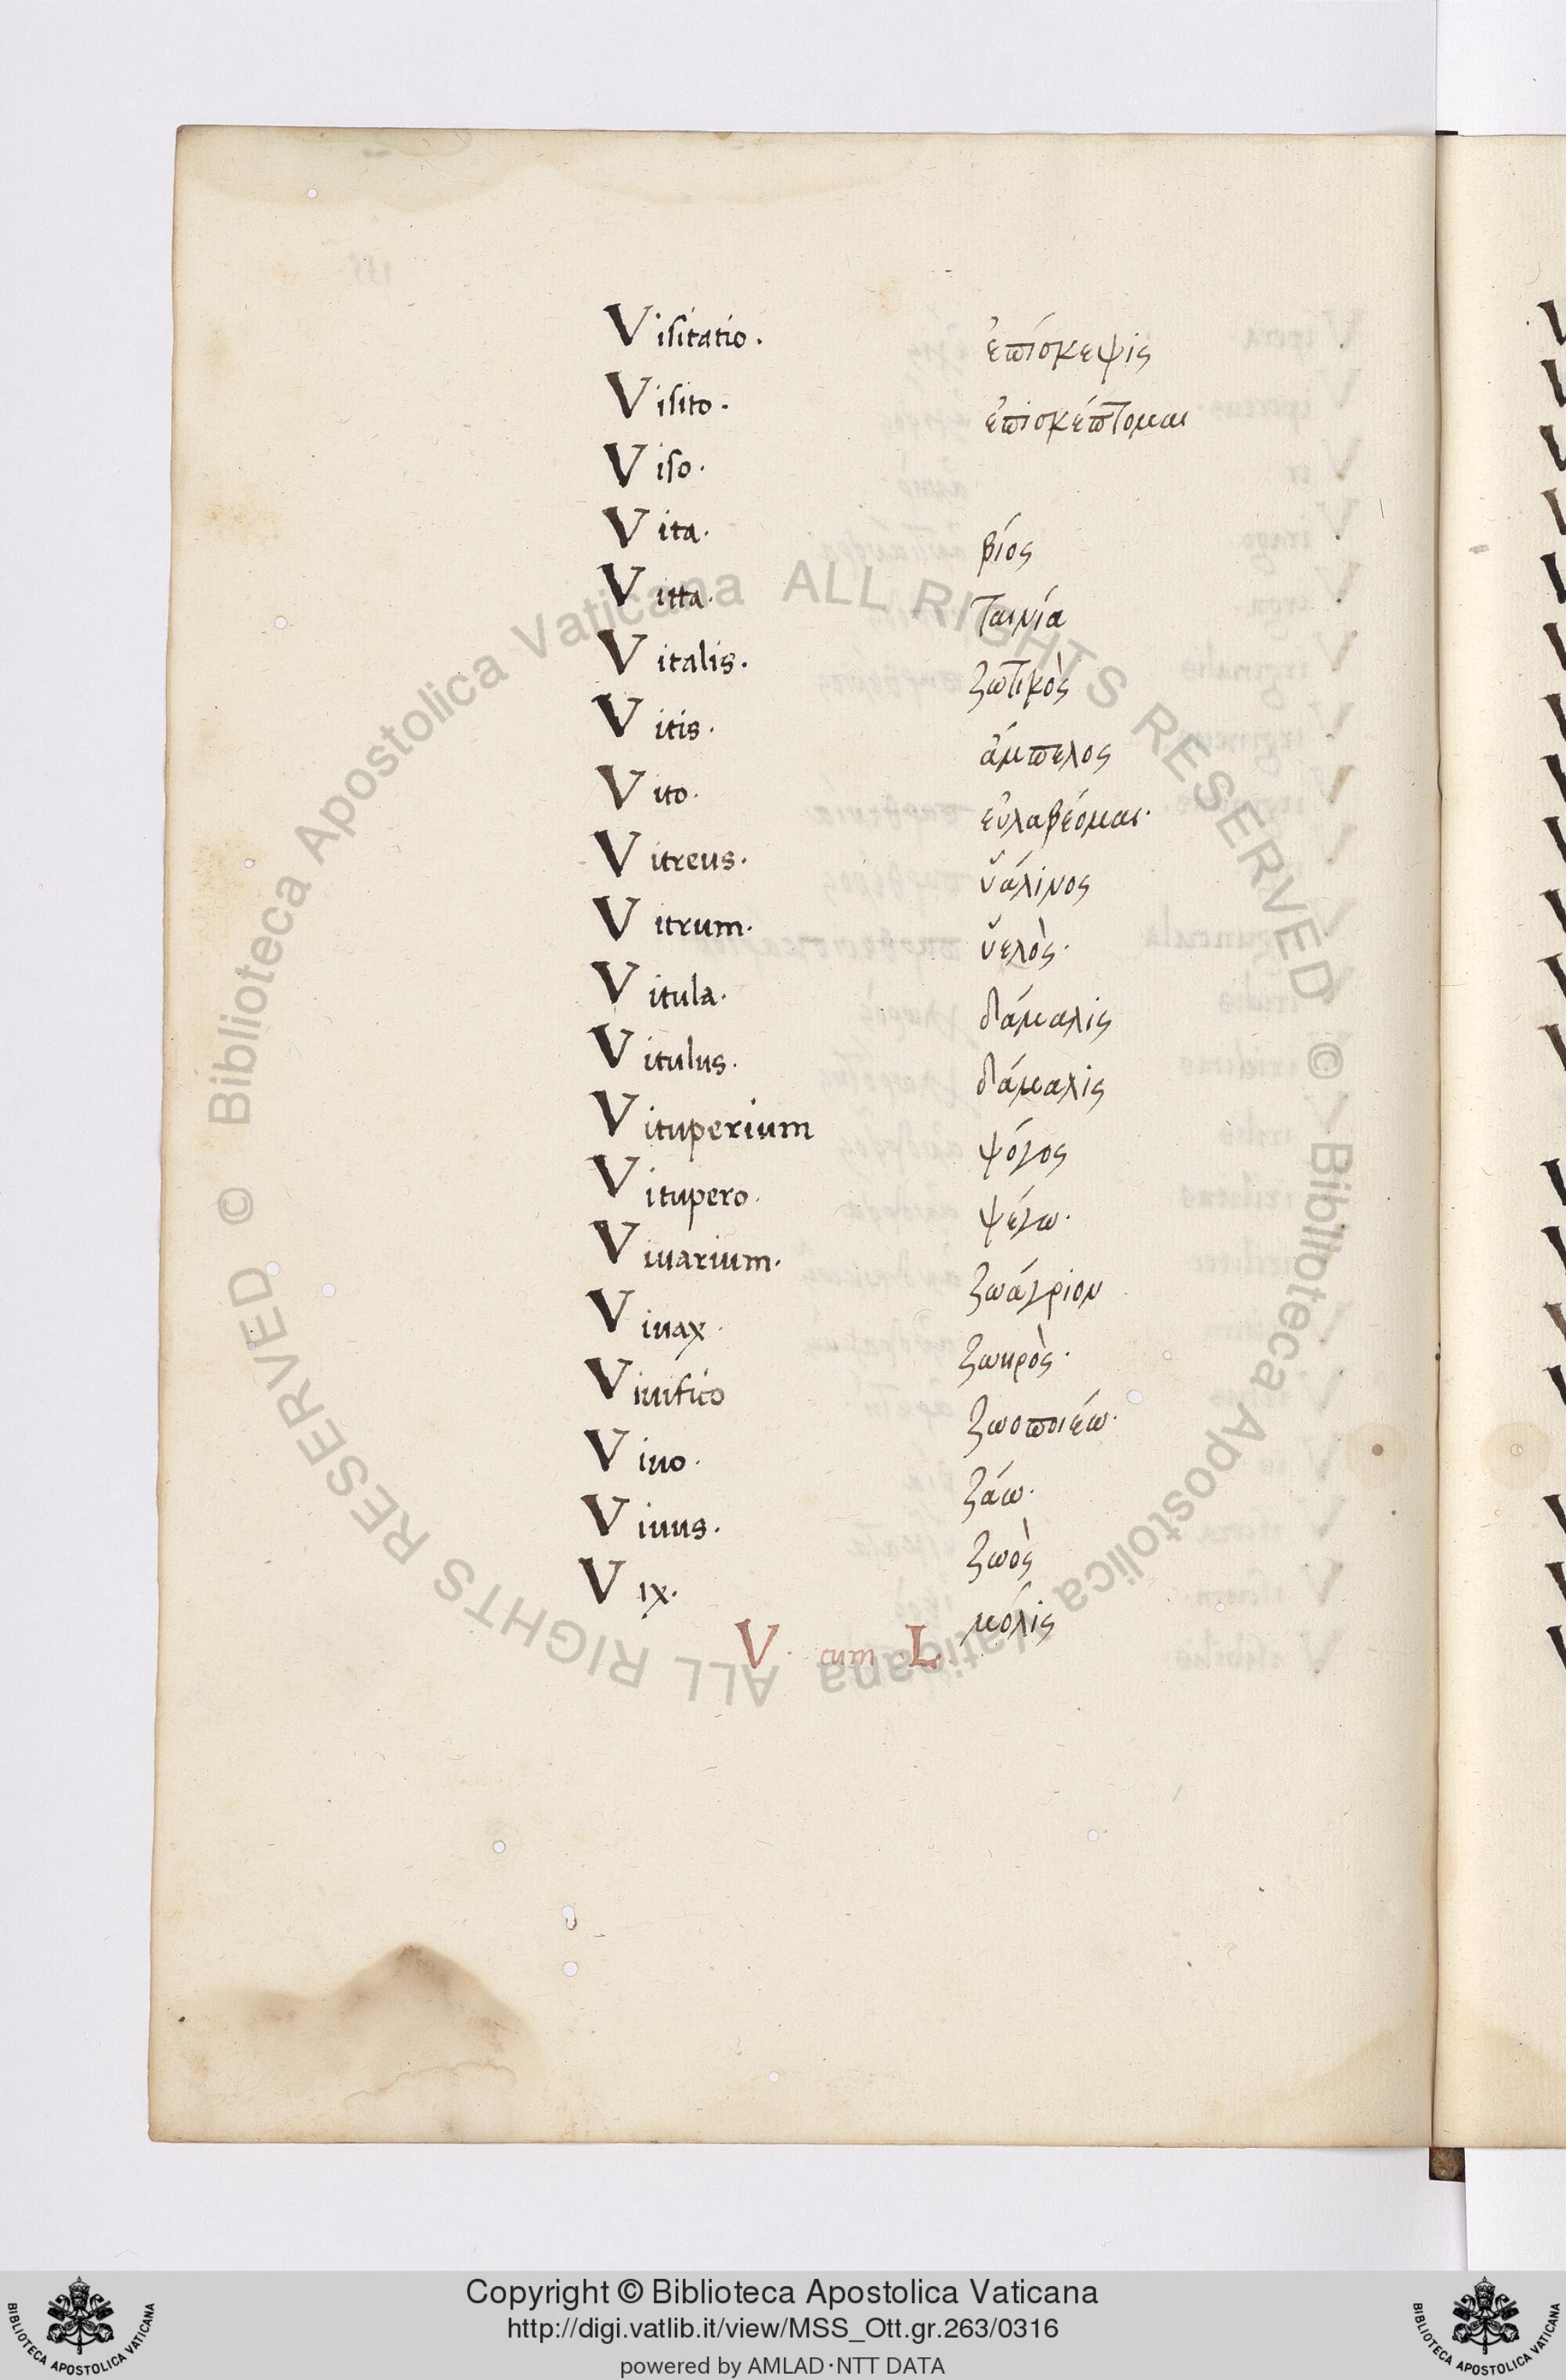 Visitatio. ἐπίσκεψις
Visito. ἐπισκέπτομαι
Viso.
Vita. βίος
Vitta. ταινία
Vitalis. ζωτικὸς
Vitis. ἄμπελος
Vito. εὐλαβέομαι.
Vitreus. ὑάλινος
Vitrum. ὑελὸς.
Vitula. δάμαλις
Vitulus. δάμαλις
Vituperium ψόγος
Vitupero. ψέγω.
Viuarium. ζωάγριον
Viuax. ζωηρὸς.
Viuifico ζωοποιέω.
Viuo. ζάω.
Viuus. ζωὸς
Vix. μόλις
V. cum. L
© Biblioteca Apostolica Vaticana ALL RIGHTS RESERVED © Biblioteca Apostolica Vaticana ALL RIGHTS RESERVED
Copyright © Biblioteca Apostolica Vaticana
http://digi.vatlib.it/view/MSS_Ott.gr.263/0316
powered by AMLAD·NTT DATA
BIBLIOTECA APOSTOLICA VATICANA
BIBLIOTECA APOSTOLICA VATICANA